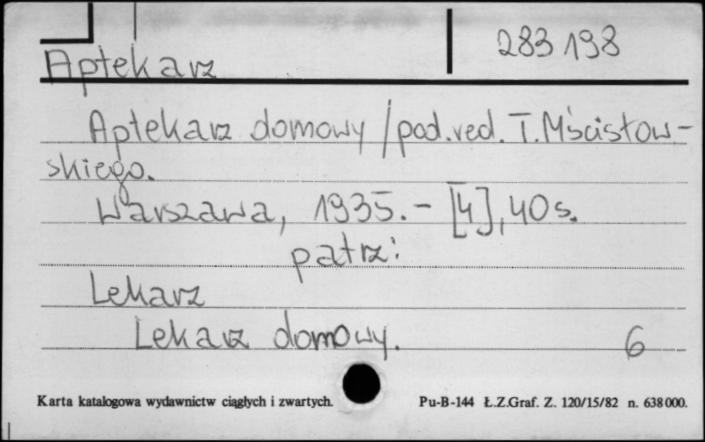 283198
Aptekarz
Aptekarz domowy / pod.red. T.Mścisłow-
skiego.
Warszawa, 1935. - [4], 40 s.
patrz:
Lekarz
Lekarz domowy.
6
Karta katalogowa wydawnictw ciągłych i zwartych.
Pu-B-144 Ł.Z.Graf. Z. 120/15/82 n. 638 000.